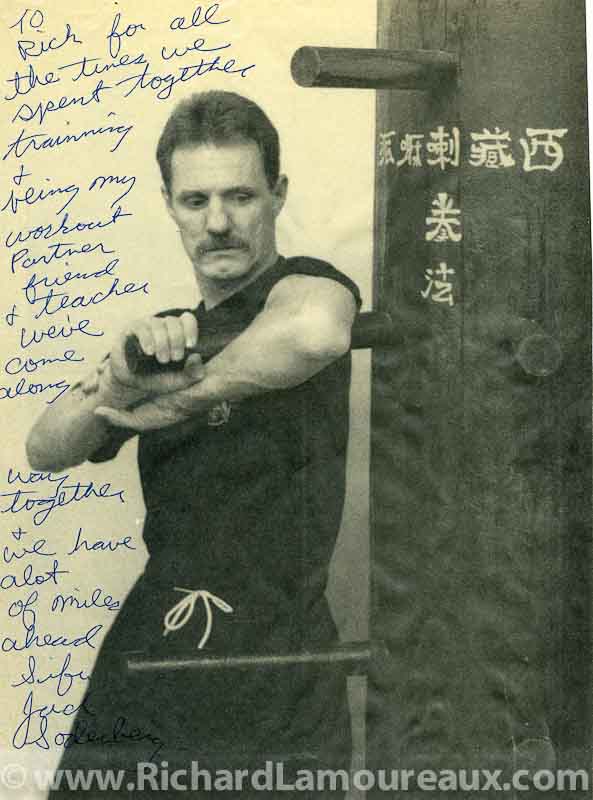 To
Rich for all
the times we
spent together
trainning
&
being my
workout
Partner
friend
& teacher
we've
come
along
way
together
&
we have
alot
of miles
ahead
Sifu
Jack
Soderberg
西藏喇
拳
法
© www.RichardLamoureaux.com